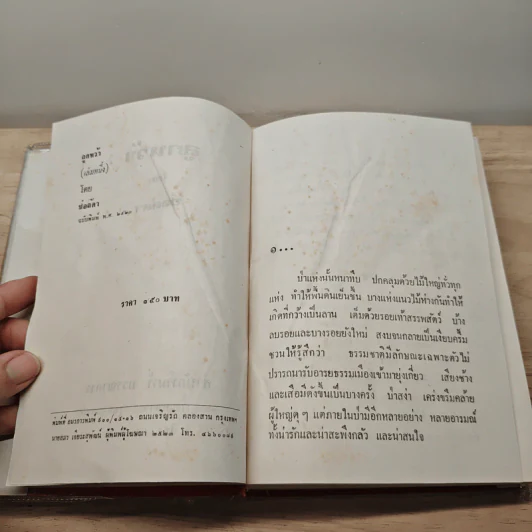 ลูกหว้า
(เล่มหนึ่ง)
โดย
ช่อลัดา
ฉบับพิมพ์ พ.ศ. ๒๕๒๓
ราคา ๑๕๐ บาท
๑...
ป่าแห่งนั้นหนาทึบ ปกคลุมด้วยไม้ใหญ่ทั่วทุก
แห่ง ทำให้พื้นดินเย็นชื้น บางแห่งแนวไม้ห่างกันทำให้
เกิดที่กว้างเป็นลาน เต็มด้วยรอยเท้าสรรพสัตว์ บ้าง
ลบรอยและบางรอยยังใหม่ สงบจนกลายเป็นเงียบครึ้ม
ชวนให้รู้สึกว่า ธรรมชาติมีลักษณะเฉพาะตัวไม่
ปรารถนารับอารยธรรมเมืองเข้ามายุ่งเกี่ยว เสียงช้าง
และเสือมีดังขึ้นเป็นบางครั้ง น่าสง่า เคร่งขรึมคล้าย
ผู้ใหญ่ดุ ๆ แต่ภายในป่ามีอีกหลายอย่าง หลายอารมณ์
ทั้งน่ารักและน่าสะพึงกลัว และน่าสนใจ
พิมพ์ที่ ถนนเจริญรัถ คลองสาน กรุงเทพฯ
ผู้พิมพ์ผู้โฆษณา ๒๕๒๓ โทร.